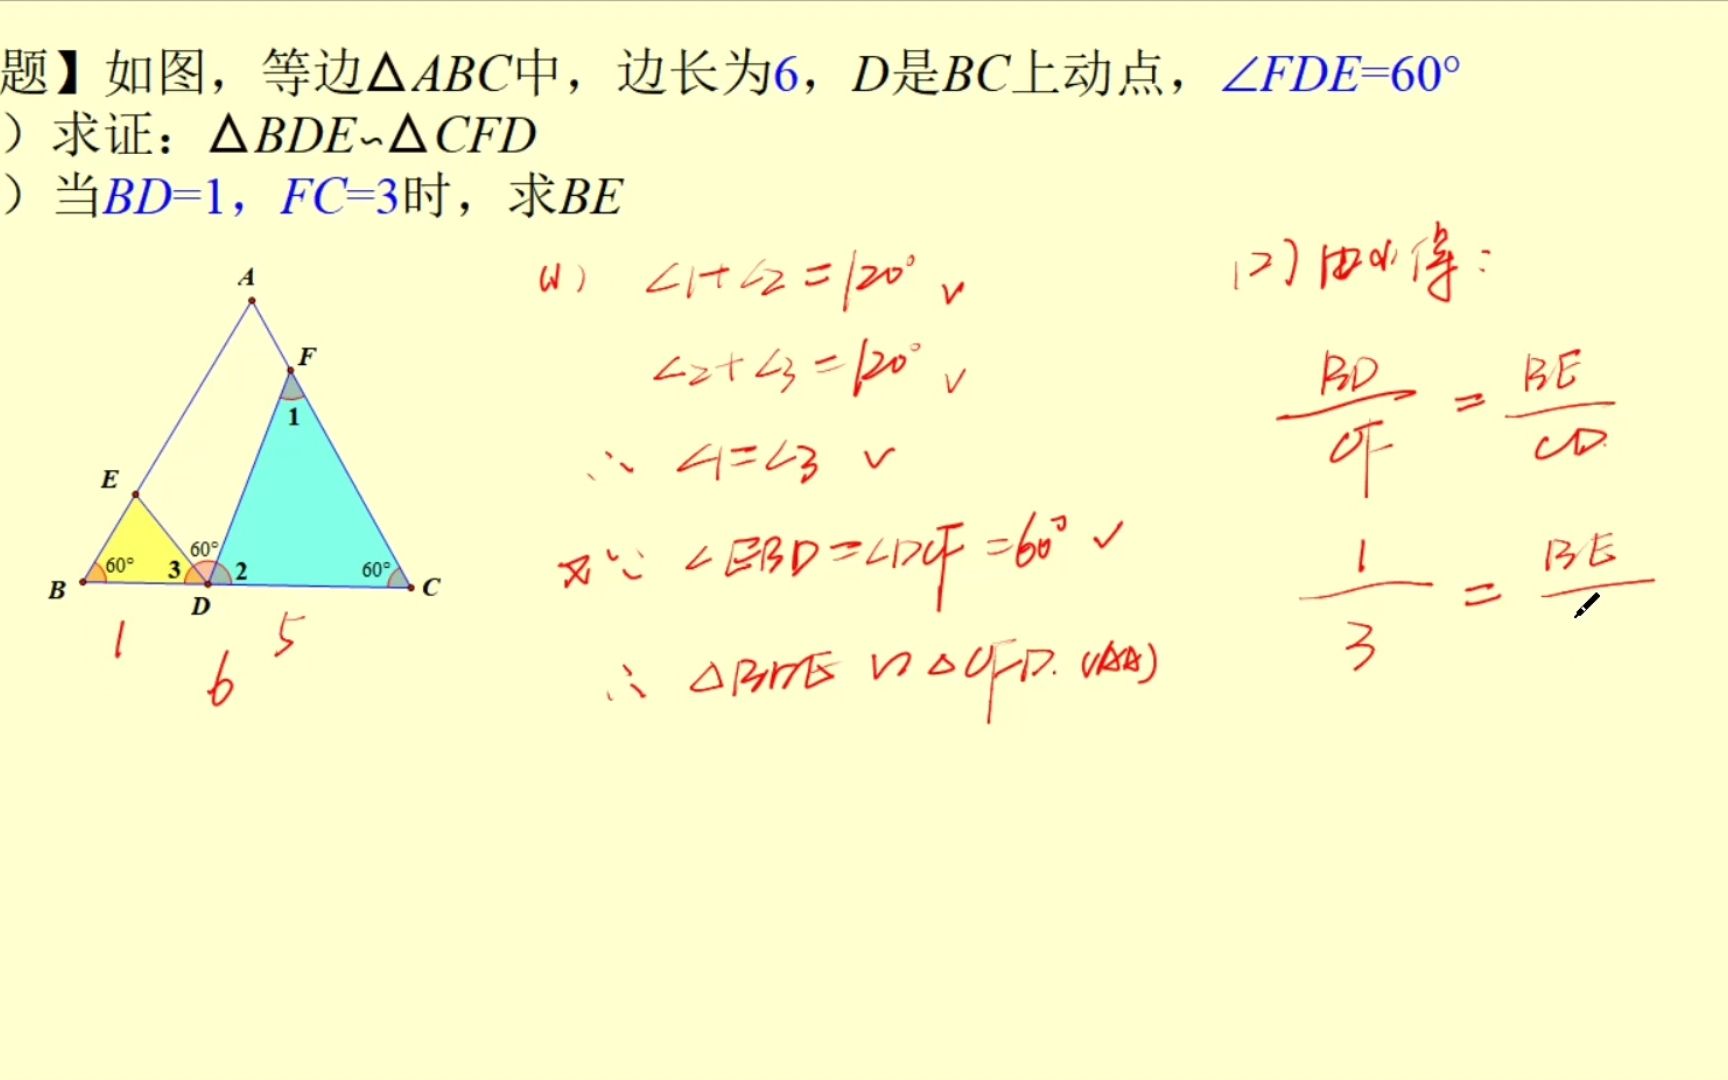 题】如图，等边△ABC中，边长为6，D是BC上动点，∠FDE=60°
）求证：△BDE∽△CFD
）当BD=1，FC=3时，求BE
A
F
1
E
60°
60°
3
2
60°
B
D
C
1
5
6
(1) ∠1+∠2=120° ✓
∠2+∠3=120° ✓
∴ ∠1=∠3 ✓
又∵ ∠EBD=∠DCF=60° ✓
∴ △BDE∽△CFD. (AA)
(2) 由(1)得：
BD/CF = BE/CD
1/3 = BE/